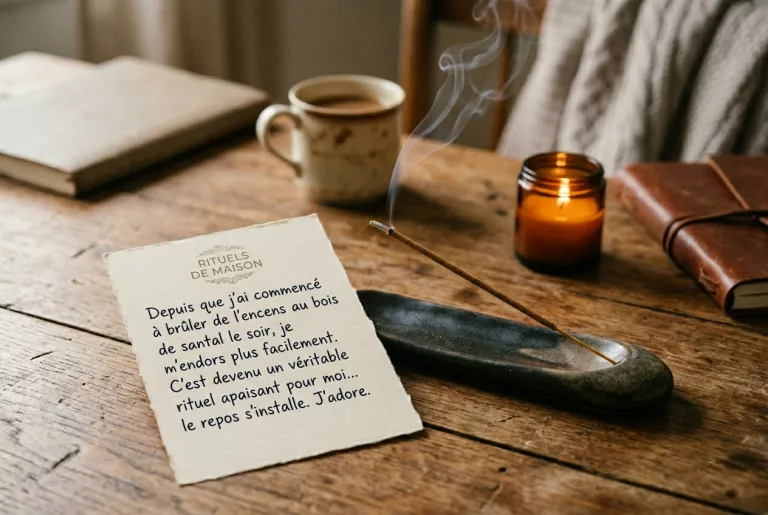 RITUELS
DE MAISON
Depuis que j'ai commencé
à brûler de l'encens au bois
de santal le soir, je
m'endors plus facilement.
C'est devenu un véritable
rituel apaisant pour moi...
le repos s'installe. J'adore.